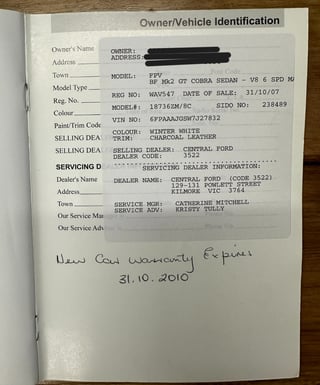 Owner/Vehicle Identification
Owner's Name
OWNER:
Address
ADDRESS:
Town
MODEL: FPV
BF MK2 GT COBRA SEDAN - V8 6 SPD MA
Model Type
Reg. No.
REG NO: WAV547 DATE OF SALE: 31/10/07
MODEL#: 18736ZM/8C SIDO NO: 238489
Colour
VIN NO: 6FPAAAJGSW7J27832
Paint/Trim Code
COLOUR: WINTER WHITE
TRIM: CHARCOAL LEATHER
SELLING DEA
SELLING DEALER: CENTRAL FORD
DEALER CODE: 3522
SELLING DEA
SERVICING D
SERVICING DEALER INFORMATION:
Dealer's Name
DEALER NAME: CENTRAL FORD (CODE 3522)
129-131 POWLETT STREET
Address
KILMORE VIC 3764
Town
SERVICE MGR: CATHERINE MITCHELL
SERVICE ADV: KRISTY TULLY
Our Service Ma
Our Service Advis
New Car Warranty Expires
31.10.2010